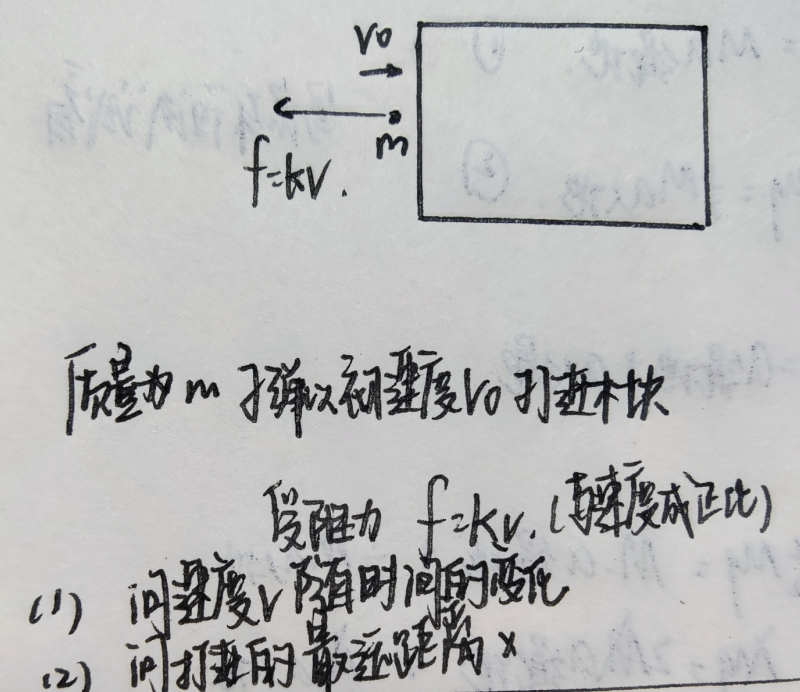 v0
m
f=kv.
质量为m 子弹以初速度v0 打进木块
受阻力 f=kv. (与速度成正比)
(1) 问速度v 随时间的变化
(2) 问打进的最远距离x